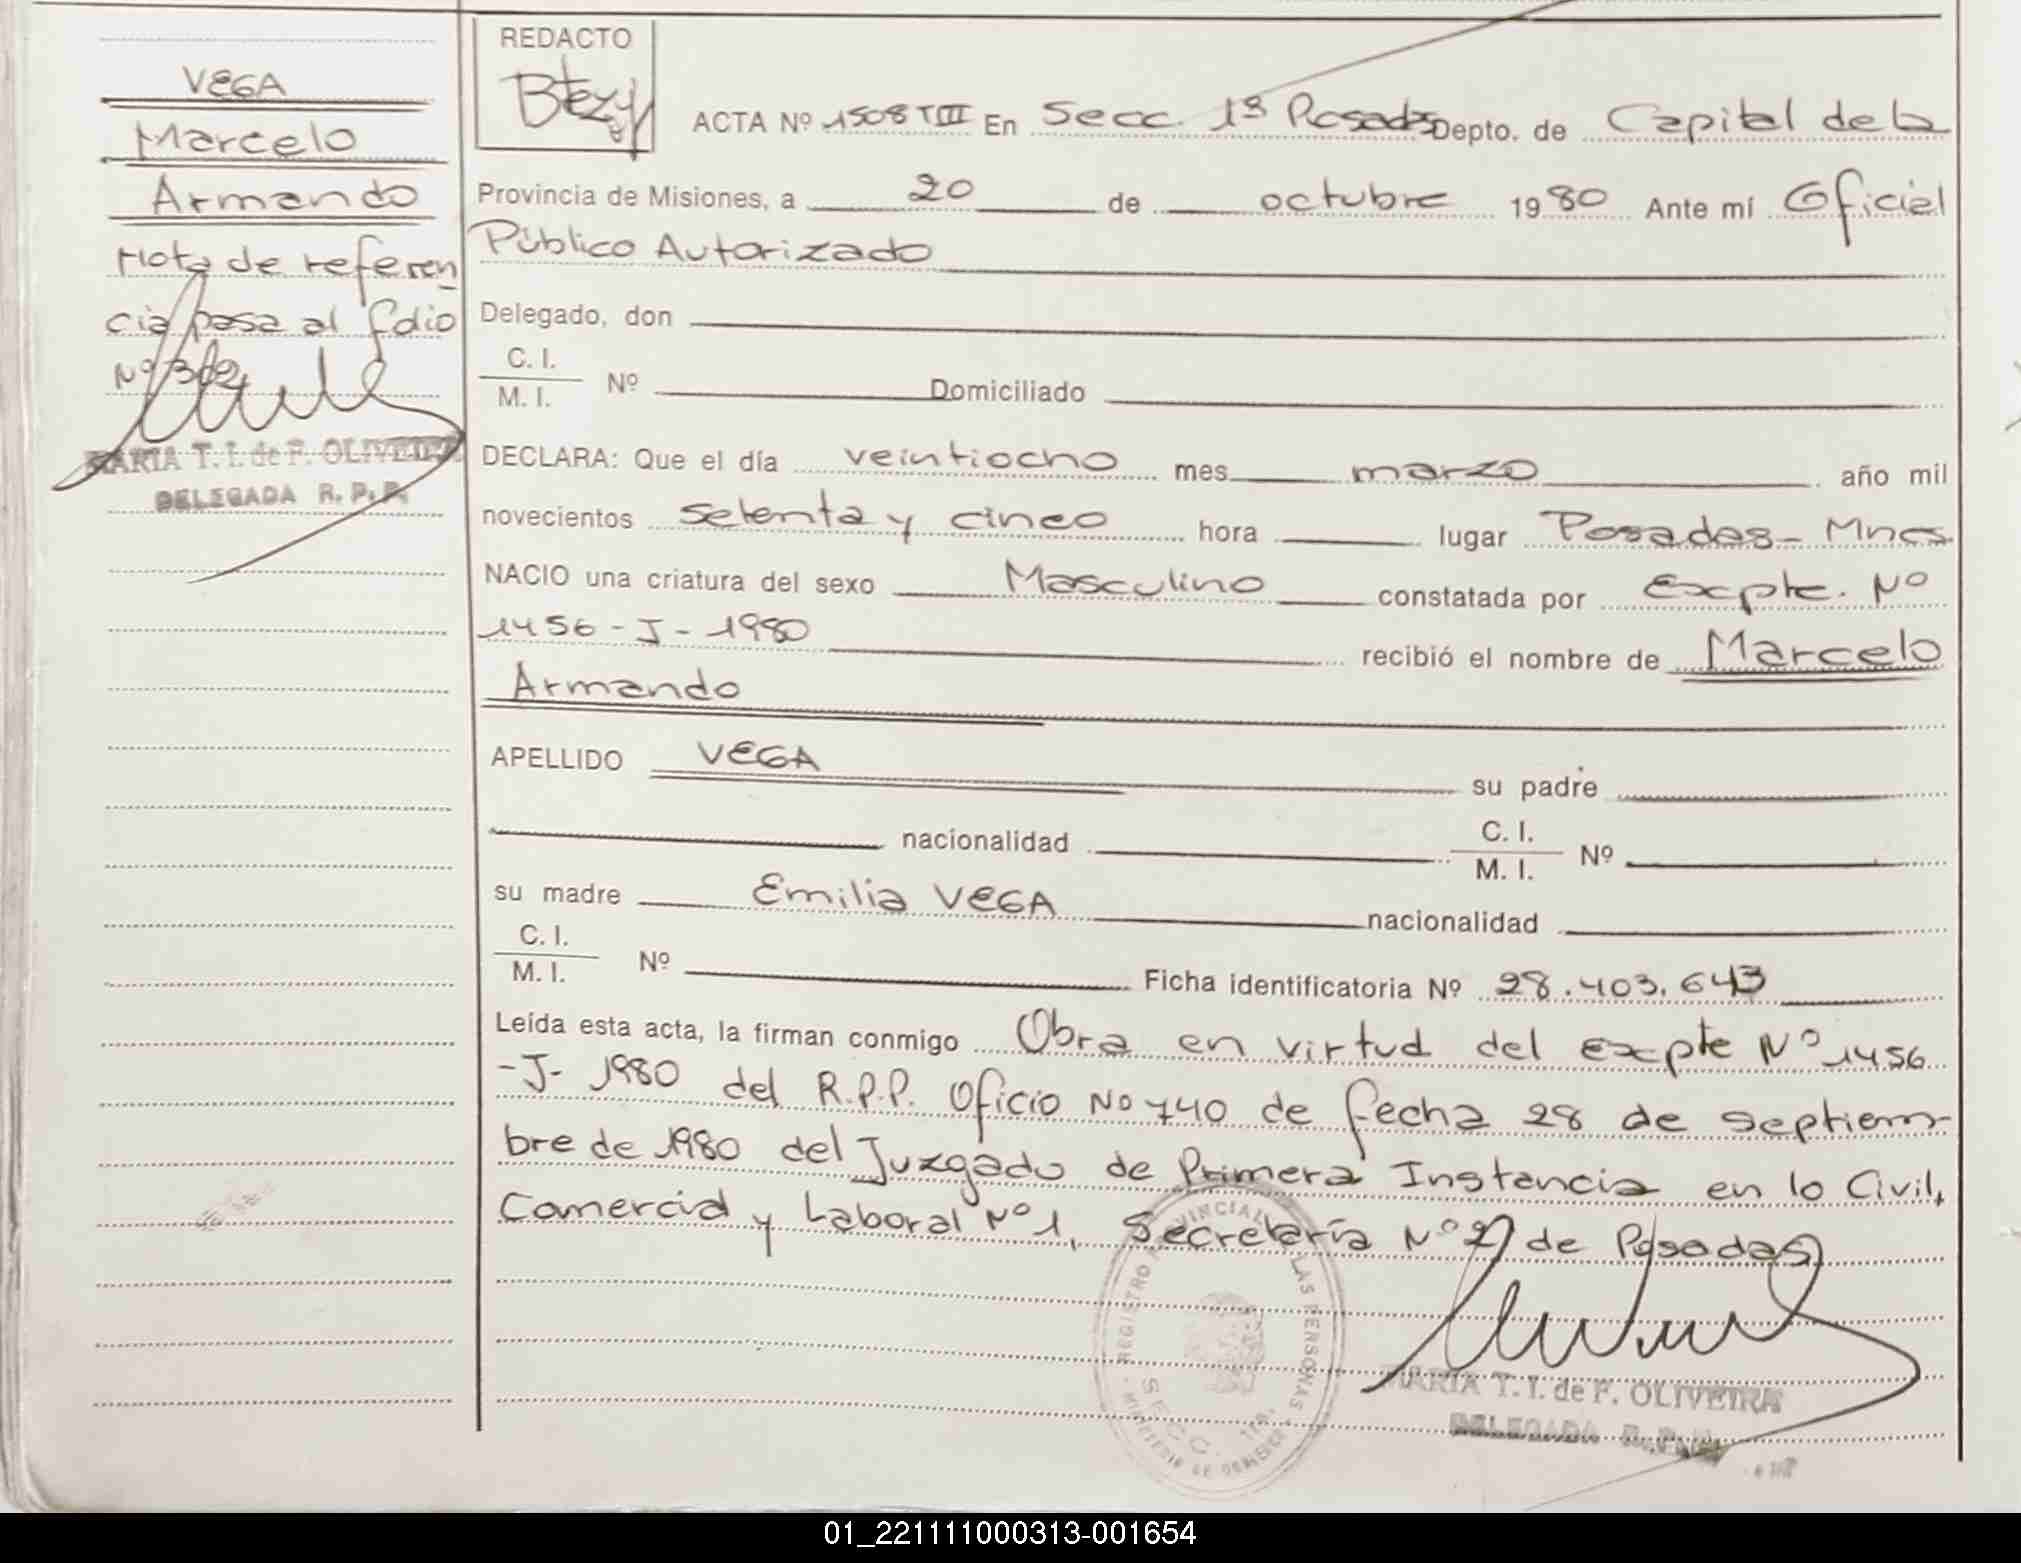 VEGA
Marcelo
Armando
Nota de referen
cia pasa al folio
Nº 302
MARIA T. I. de F. OLIVEIRA
DELEGADA R. P. P.
REDACTO
ACTA Nº 1508 TIII En Secc. 1ª Posadas Depto. de Capital de la
Provincia de Misiones, a 20 de octubre 1980 Ante mí Oficial
Público Autorizado
Delegado, don
C. I.
M. I. Nº Domiciliado
DECLARA: Que el día veintiocho mes marzo año mil
novecientos setenta y cinco hora lugar Posadas - Mnes
NACIO una criatura del sexo Masculino constatada por Excpte. Nº
1456 - J - 1980 recibió el nombre de Marcelo
Armando
APELLIDO VEGA su padre
nacionalidad C. I.
M. I. Nº
su madre Emilia VEGA nacionalidad
C. I.
M. I. Nº Ficha identificatoria Nº 28.403.643
Leída esta acta, la firman conmigo Obra en virtud del excpte Nº 1456
-J- 1980 del R.P.P. Oficio Nº 740 de fecha 28 de septiem-
bre de 1980 del Juzgado de Primera Instancia en lo Civil,
Comercial y Laboral Nº 1, Secretaría Nº 2 de Posadas
REGISTRO PROVINCIAL DE LAS PERSONAS
SECC. 1ra.
MINISTERIO DE GOBIERNO
MARIA T. I. de F. OLIVEIRA
DELEGADA R. P. P.
01_221111000313-001654